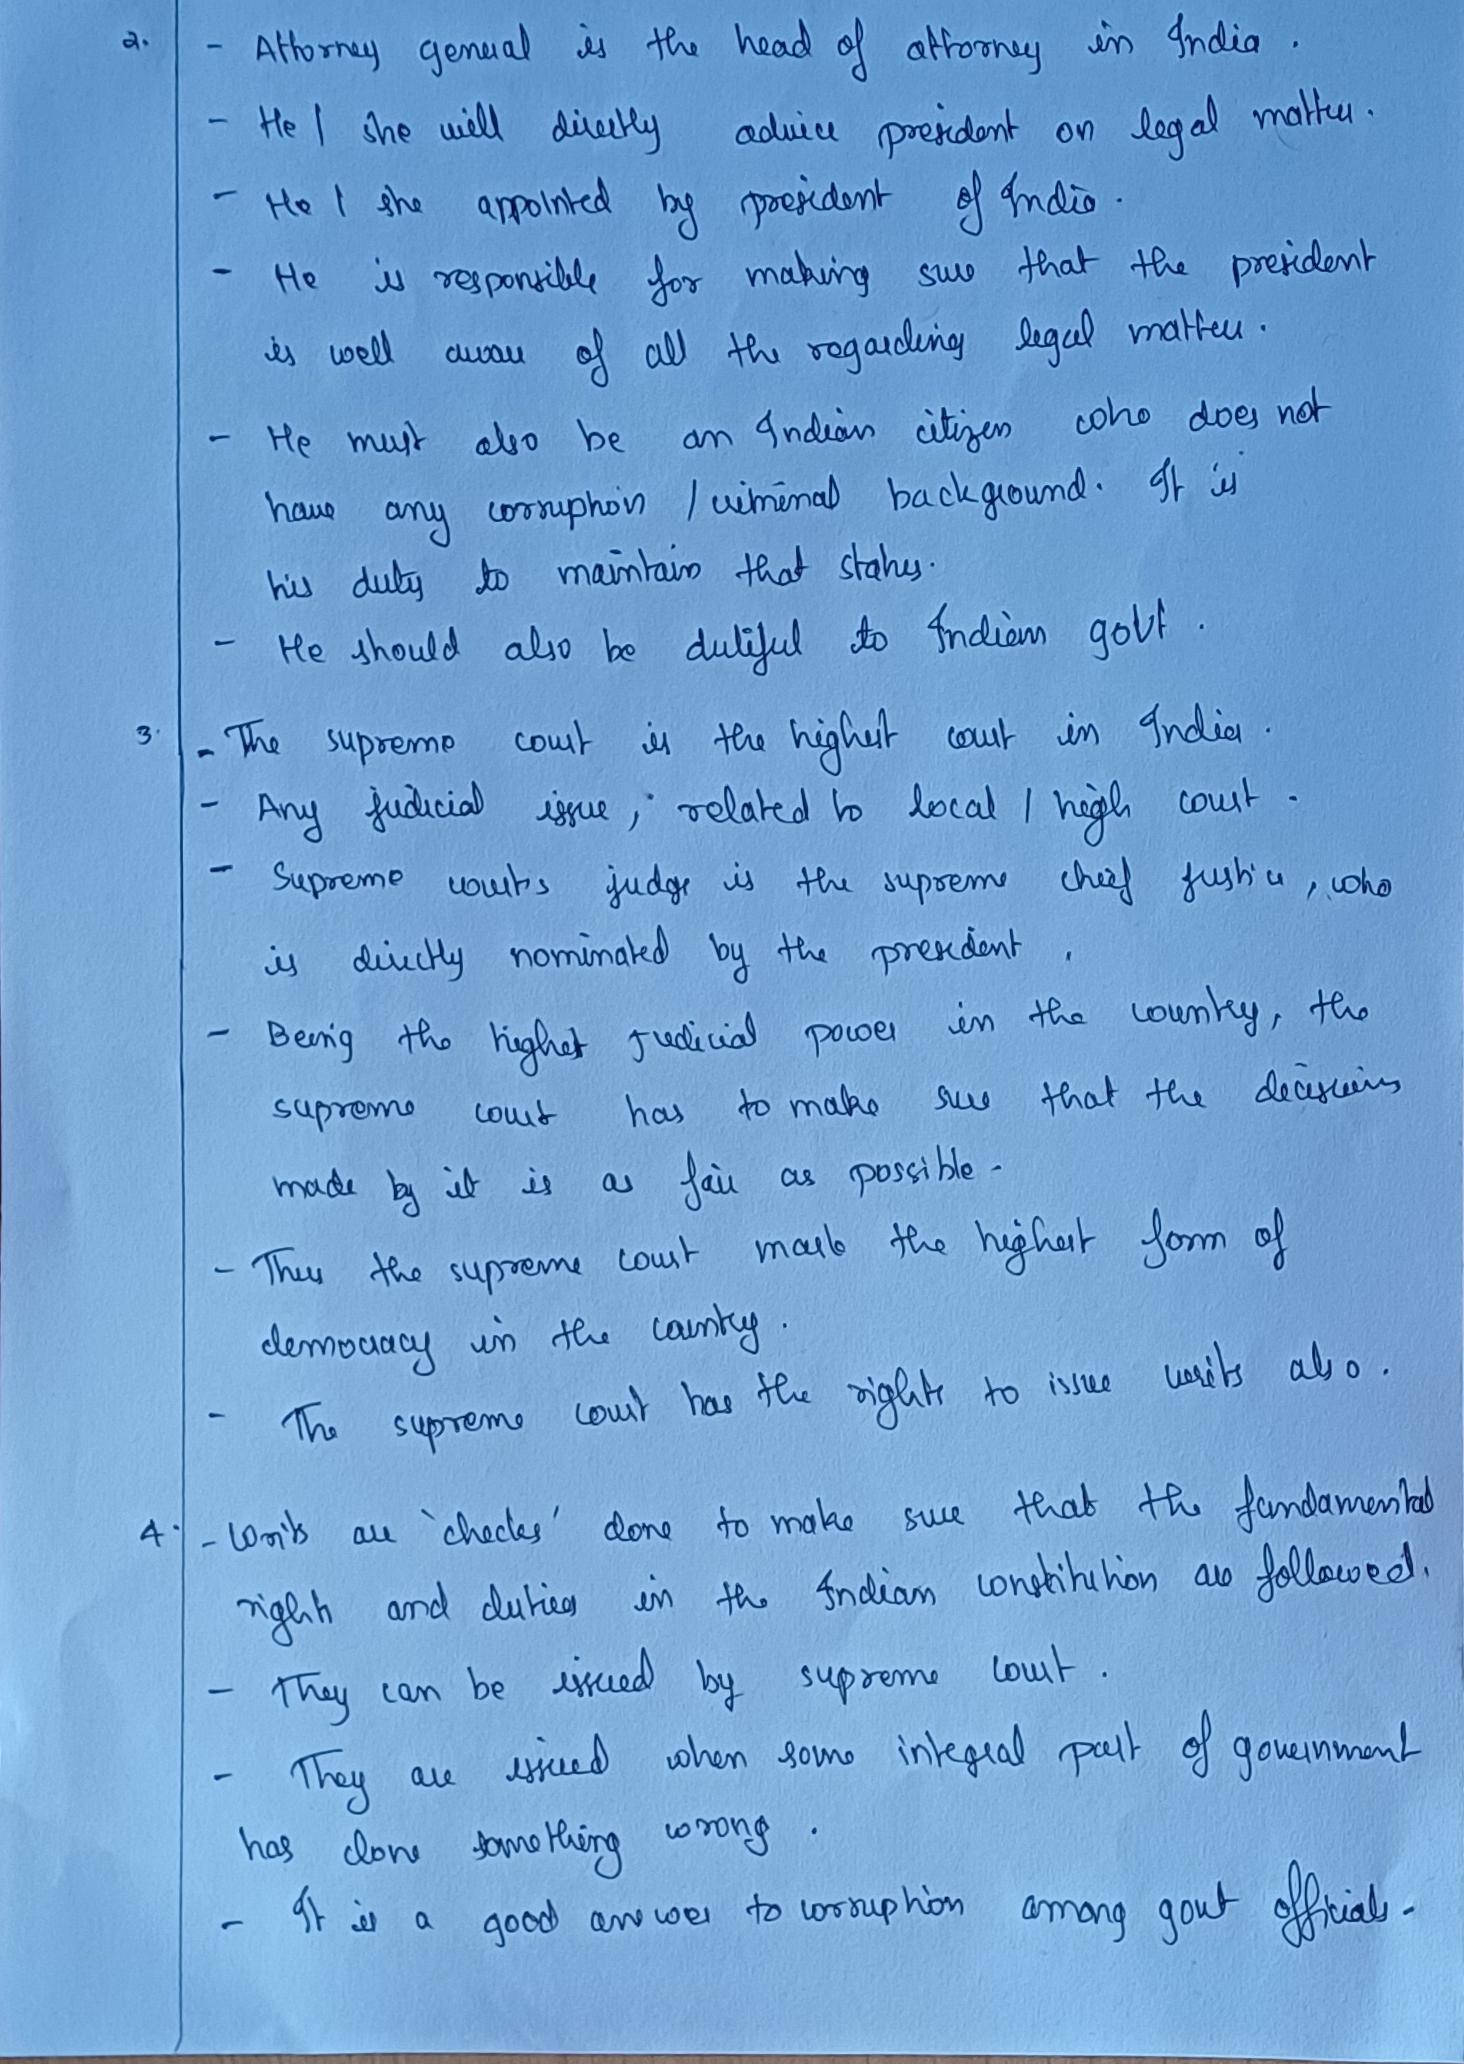 2. - Attorney general is the head of attorney in India.
- He / she will directly advice president on legal matter.
- He / she appointed by president of India.
- He is responsible for making sure that the president
is well aware of all the regarding legal matter.
- He must also be an Indian citizen who does not
have any corruption / criminal background. It is
his duty to maintain that status.
- He should also be dutiful to Indian govt.
3. - The supreme court is the highest court in India.
- Any judicial issue, related to local / high court.
- Supreme courts judge is the supreme cheif justice, who
is directly nominated by the president.
- Being the highest judicial power in the country, the
supreme court has to make sure that the decisions
made by it is as fair as possible.
- Thus the supreme court marks the highest form of
democracy in the country.
- The supreme court has the rights to issue writs also.
4. - Writs are 'checks' done to make sure that the fundamental
rights and duties in the Indian constitution are followed.
- They can be issued by supreme court.
- They are issued when some integral part of government
has done something wrong.
- It is a good answer to corruption among govt officials.